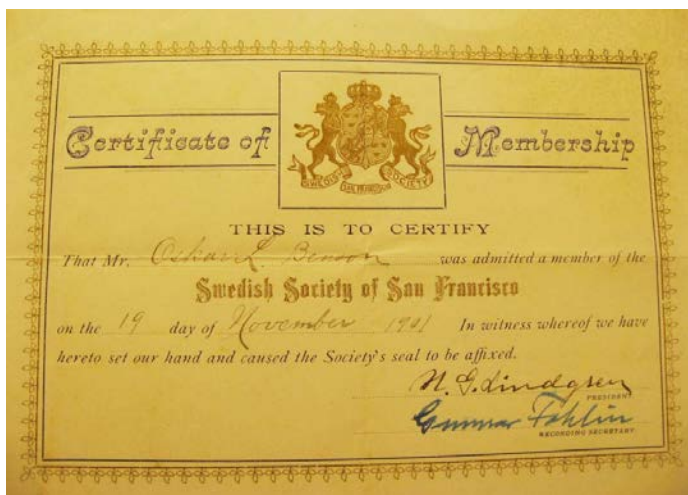 Certificate of Membership
SWEDISH SAN FRANCISCO SOCIETY
THIS IS TO CERTIFY
That Mr. Oskar L Benson was admitted a member of the
Swedish Society of San Francisco
on the 19 day of November 1901 In witness whereof we have
hereto set our hand and caused the Society's seal to be affixed.
N. G. Lindgren
PRESIDENT
Gunnar Fahlin
RECORDING SECRETARY